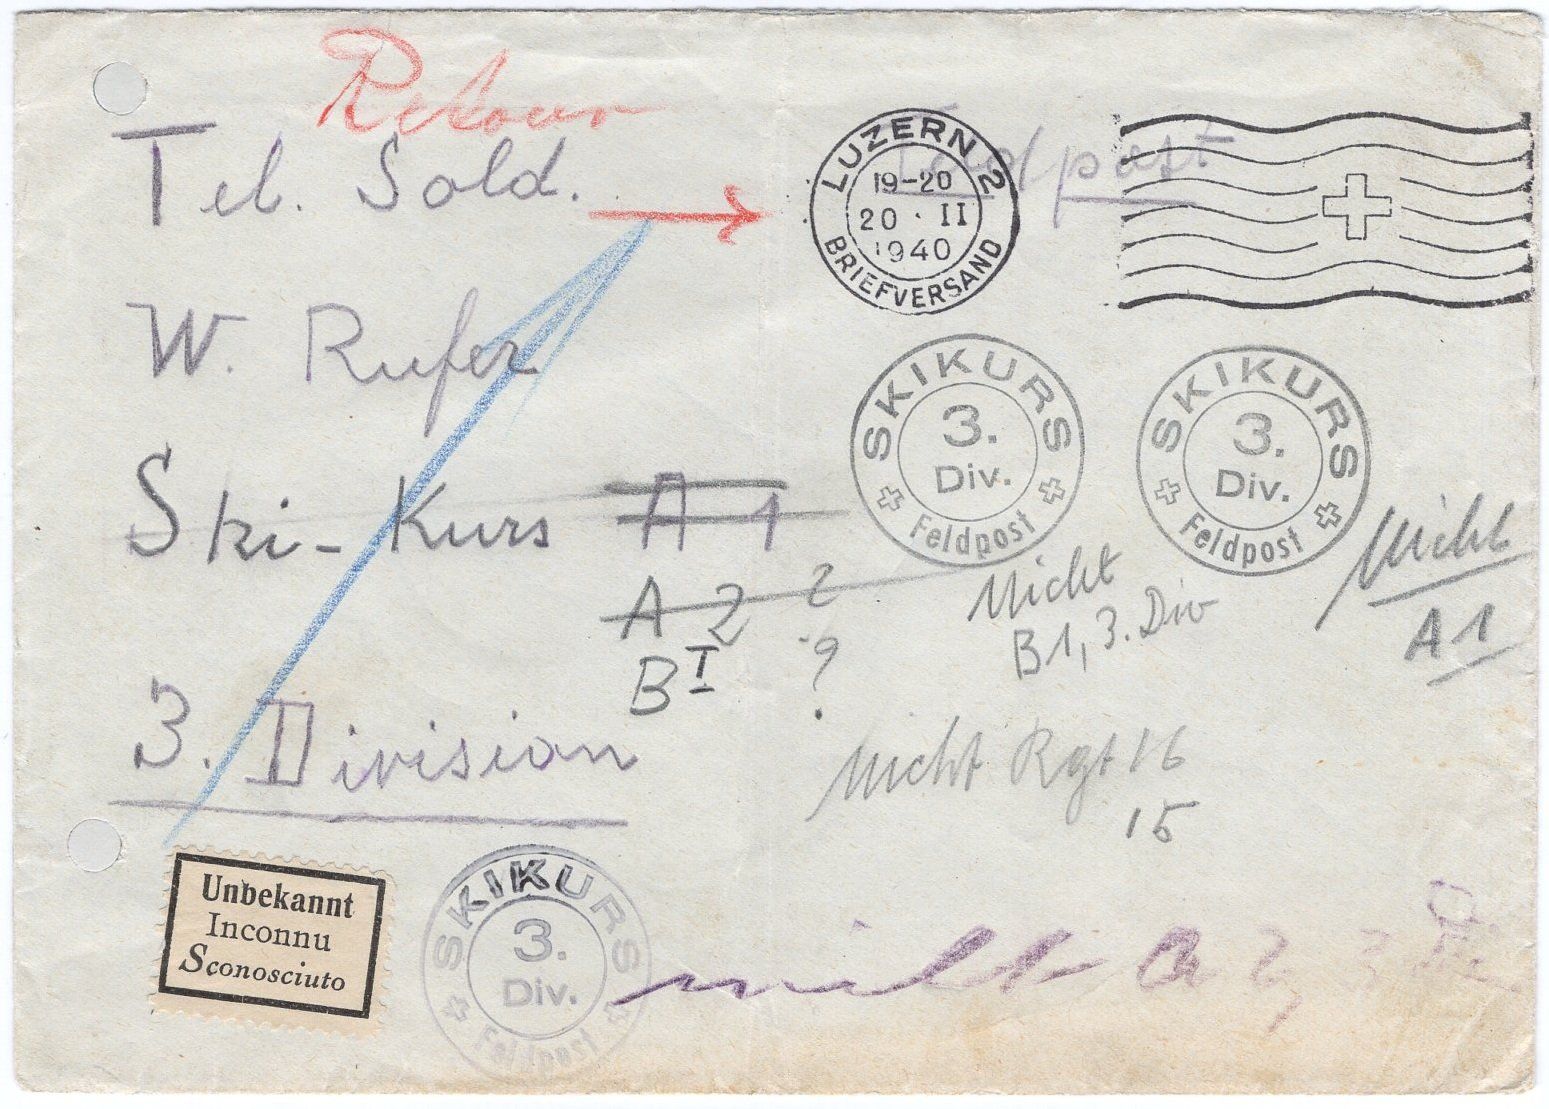 Retour
Tel. Sold.
Feldpost
LUZERN 2
19-20
20 · II
1940
BRIEFVERSAND
W. Rufer
SKIKURS
3.
Div.
Feldpost
SKIKURS
3.
Div.
Feldpost
Ski-Kurs A 1
A 2 ?
B I ?
Nicht
B1, 3. Div
Nicht
A1
3. Division
nicht Rgt 16
15
Unbekannt
Inconnu
Sconosciuto
SKIKURS
3.
Div.
Feldpost
nicht A 2, 3. Div